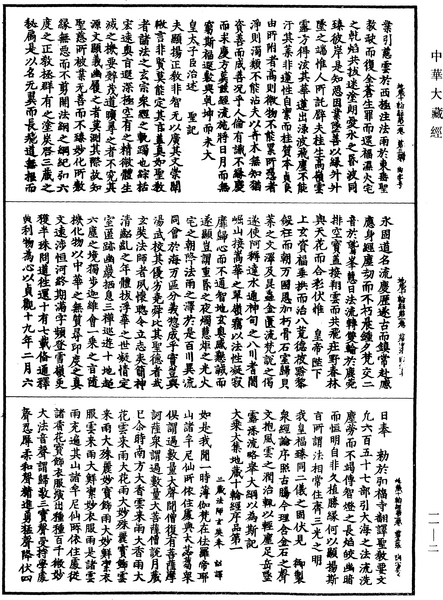 中華大藏經
葉引慈雲於西極注法雨於東垂聖
教缺而復全蒼生罪而還福濕火宅
之乾焰共拔迷塗朗愛水之昏波同
臻彼岸是知惡因業墜善以緣昇昇
墜之端惟人所託譬夫桂生高嶺雲
露方得泫其華蓮出淥波飛塵不能
汙其葉非蓮性自潔而桂質本貞良
由所附者高則微物不能累所憑者
淨則濁類不能沾夫以卉木無知猶
資善而成善況乎人倫有識不緣慶
而求慶方冀茲經流施將日月而無
窮斯福遐敷與乾坤而永大
皇太子臣治述　聖記
夫顯揚正教非智無以廣其文崇闡
微言非賢莫能定其旨蓋真如聖教
者諸法之玄宗衆經之軌躅也綜括
宏遠奧旨遐深極空有之精微體生
滅之機要辭茂道曠尋之者不究其
源文顯義幽履之者莫測其際故知
聖慈所被業無善而不臻妙化所敷
緣無惡而不剪開法網之綱紀弘六
度之正教拯群有之塗炭啓三藏之
秘扃是以名無翼而長飛道無根而
永固道名流慶歷遂古而鎮常赴感
應身經塵劫而不朽晨鍾夕梵交二
音於鷲峯慧日法流轉雙輪於鹿菀
排空寶蓋接翔雲而共飛莊野春林
與天花而合彩伏惟　皇帝陛下
上玄資福垂拱而治八荒德被黔黎
斂衽而朝萬國恩加朽骨石室歸貝
葉之文澤及昆蟲金匱流梵說之偈
遂使阿耨達水通神甸之八川耆闍
崛山接嵩華之翠嶺竊以法性凝寂
靡歸心而不通智地玄奧感懇誠而
遂顯豈謂重昏之夜燭慧炬之光火
宅之朝降法雨之澤於是百川異流
同會於海萬區分義惣成乎實豈與
湯武校其優劣堯舜比其聖德者哉
玄奘法師者夙懷聰令立志夷簡神
清齠齔之年體拔浮華之世凝情定
室匿跡幽巖栖息三禪巡遊十地超
六塵之境獨步迦維會一乘之旨隨
機化物以中華之無質尋印度之真
文遠涉恒河終期滿字頻登雪嶺更
獲半珠問道往還十有七載備通釋
典利物爲心以貞觀十九年二月六
日奉　勅於弘福寺翻譯聖教要文
凡六百五十七部引大海之法流洗
塵勞而不竭傳智燈之長焰皎幽暗
而恒明自非久植勝緣何以顯揚斯
旨所謂法相常住齊三光之明
我皇福臻同二儀之固伏見　御製
衆經論序照古騰今理含金石之聲
文抱風雲之潤治輒以輕塵足岳墜
露添流略舉大綱以爲斯記
大乘大集地藏十輪經序品第一
三藏法師玄奘奉　詔譯
如是我聞一時薄伽梵在佉羅帝耶
山諸牟尼仙所依住處與大苾芻衆
俱謂過數量大聲聞僧復有菩薩摩
訶薩衆謂過數量大菩薩僧說月藏
已尒時南方大香雲來雨大香雨大
花雲來雨大花雨大妙殊麗寶飾雲
來雨大殊麗妙寶飾雨大妙鮮潔衣
服雲來雨大鮮潔妙衣服雨是諸雲
雨充遍其山諸牟尼仙所依住處從
諸香花寶飾衣服演出種種百千微妙
大法音聲謂歸敬三寶聲受持學處
聲忍辱柔和聲精進勇猛聲降伏四
一一—二